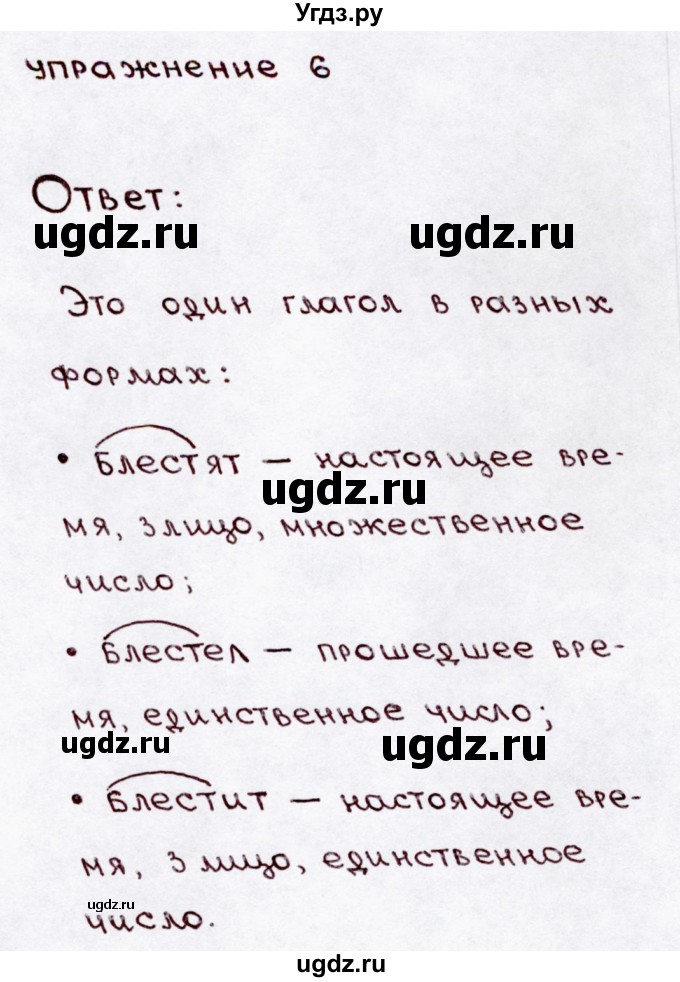 Угдз.ру
упражнение 6
Ответ:
ugdz.ru ugdz.ru
Это один глагол в разных
формах:
• Блестят — настоящее вре-
ugdz.ru
мя, 3 лицо, множественное
число;
• Блестел — прошедшее вре-
мя, единственное число;
ugdz.ru ugdz.ru
• Блестит — настоящее вре-
мя, 3 лицо, единственное
ugdz.ru
число.
ugdz.ru